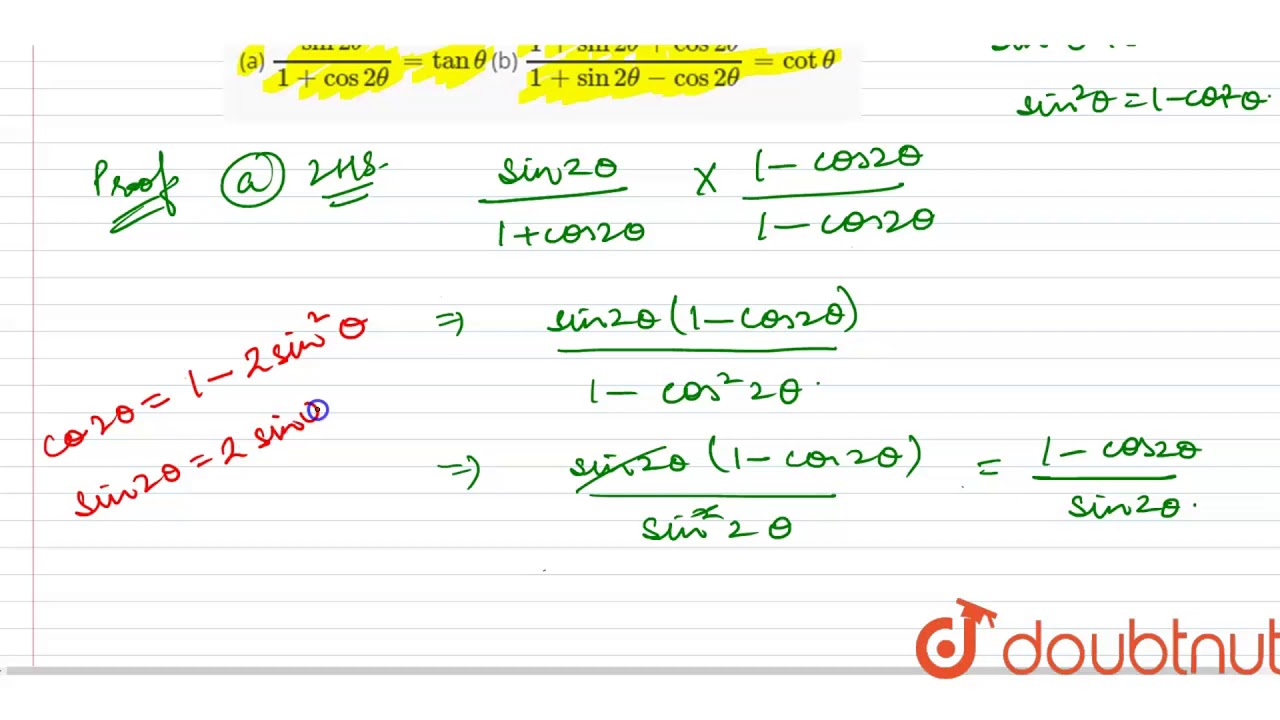 (a) sin 2θ / 1 + cos 2θ = tan θ (b) 1 + sin 2θ + cos 2θ / 1 + sin 2θ − cos 2θ = cot θ
sin²θ = 1 − cos²θ.
Proof (a) LHS. sin2θ / 1 + cos2θ × 1 − cos2θ / 1 − cos2θ
⇒ sin2θ (1 − cos2θ) / 1 − cos² 2θ.
cos2θ = 1 − 2 sin² θ
sin2θ = 2 sinθ
⇒ sin2θ (1 − cos2θ) / sin² 2θ = 1 − cos2θ / sin2θ.
doubtnut